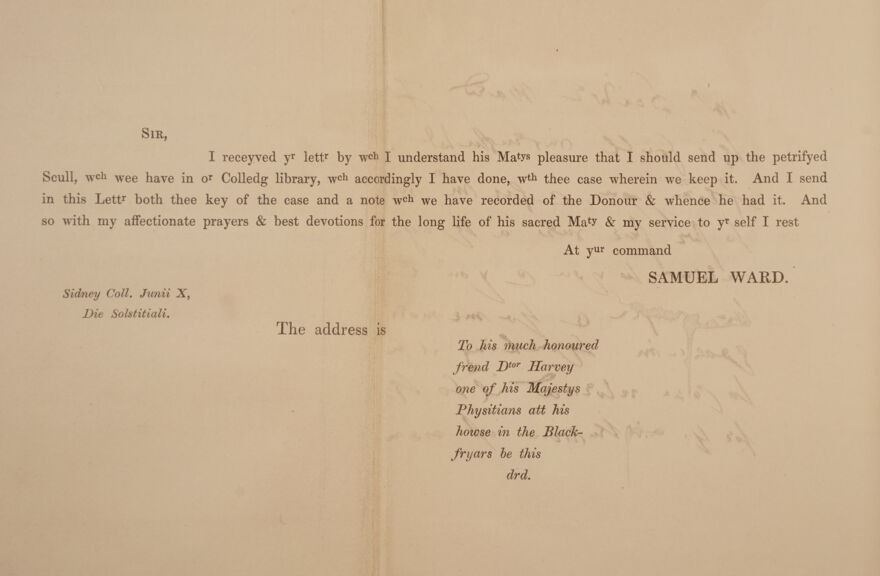 SIR,
I receyved yr lettr by wch I understand his Matys pleasure that I should send up the petrifyed
Scull, wch wee have in or Colledg library, wch accordingly I have done, wth thee case wherein we keep it. And I send
in this Lettr both thee key of the case and a note wch we have recorded of the Donour & whence he had it. And
so with my affectionate prayers & best devotions for the long life of his sacred Maty & my service to yr self I rest
At yur command
SAMUEL WARD.
Sidney Coll. Junii X,
Die Solstitiali.
The address is
To his much honoured
frend Dtor Harvey
one of his Majestys
Physitians att his
howse in the Black-
fryars be this
drd.